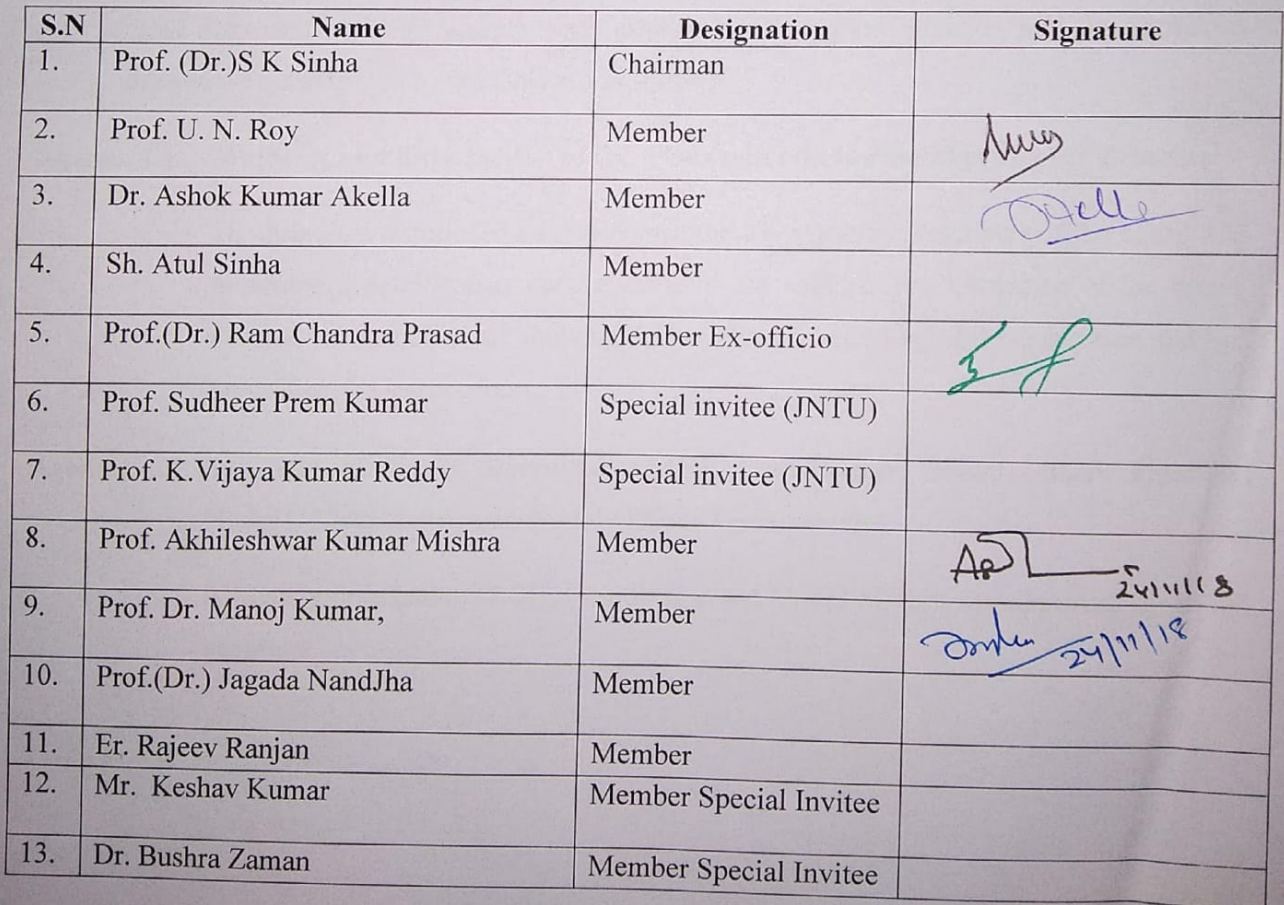 S.N Name Designation Signature
1. Prof. (Dr.)S K Sinha Chairman
2. Prof. U. N. Roy Member
3. Dr. Ashok Kumar Akella Member
4. Sh. Atul Sinha Member
5. Prof.(Dr.) Ram Chandra Prasad Member Ex-officio
6. Prof. Sudheer Prem Kumar Special invitee (JNTU)
7. Prof. K.Vijaya Kumar Reddy Special invitee (JNTU)
8. Prof. Akhileshwar Kumar Mishra Member 24/11/18
9. Prof. Dr. Manoj Kumar, Member 24/11/18
10. Prof.(Dr.) Jagada NandJha Member
11. Er. Rajeev Ranjan Member
12. Mr. Keshav Kumar Member Special Invitee
13. Dr. Bushra Zaman Member Special Invitee